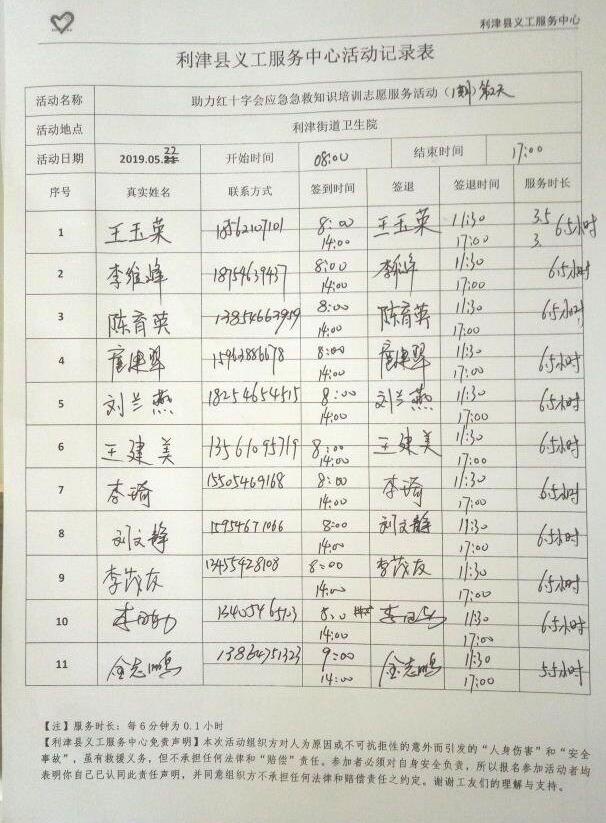 利津县义工服务中心
利津县义工服务中心活动记录表
活动名称 助力红十字会应急急救知识培训志愿服务活动（1期）第2天
活动地点 利津街道卫生院
活动日期 2019.05.22 开始时间 08:00 结束时间 17:00
序号 真实姓名 联系方式 签到时间 签退 签退时间 服务时长
1 王玉英 18562107101 8:00 王玉英 11:30 3.5 6.5小时
14:00 17:00 3
2 李维峰 18759639437 8:00 11:30 6.5小时
14:00 17:00
3 陈育英 13854663959 8:00 陈育英 11:30 6.5小时
14:00 17:00
4 15963886678 8:00 11:30 6.5小时
14:00 17:00
5 刘兰燕 18254654515 8:00 刘兰燕 11:30 6.5小时
14:00 17:00
6 王建美 13561095719 8:00 王建美 11:30 6.5小时
14:00 17:00
7 李琦 15505469168 8:00 李琦 11:30 6.5小时
14:00 17:00
8 刘文静 15954671066 8:00 刘文静 11:30 6.5小时
14:00 17:00
9 李茂友 13455428108 8:00 李茂友 11:30 6.5小时
14:00 17:00
10 8:00 11:30 6.5小时
14:00 17:00
11 金志鹏 13864751323 9:00 金志鹏 11:30 5.5小时
14:00 17:00
【注】服务时长：每6分钟为0.1小时
【利津县义工服务中心免责声明】本次活动组织方对人为原因或不可抗拒性的意外而引发的“人身伤害”和“安全
事故”，虽有救援义务，但不承担任何法律和“赔偿”责任。参加者必须对自身安全负责，所以报名参加活动者均
表明你自己已认同此责任声明，并同意组织方不承担任何法律和赔偿责任之约定。谢谢工友们的理解与支持。